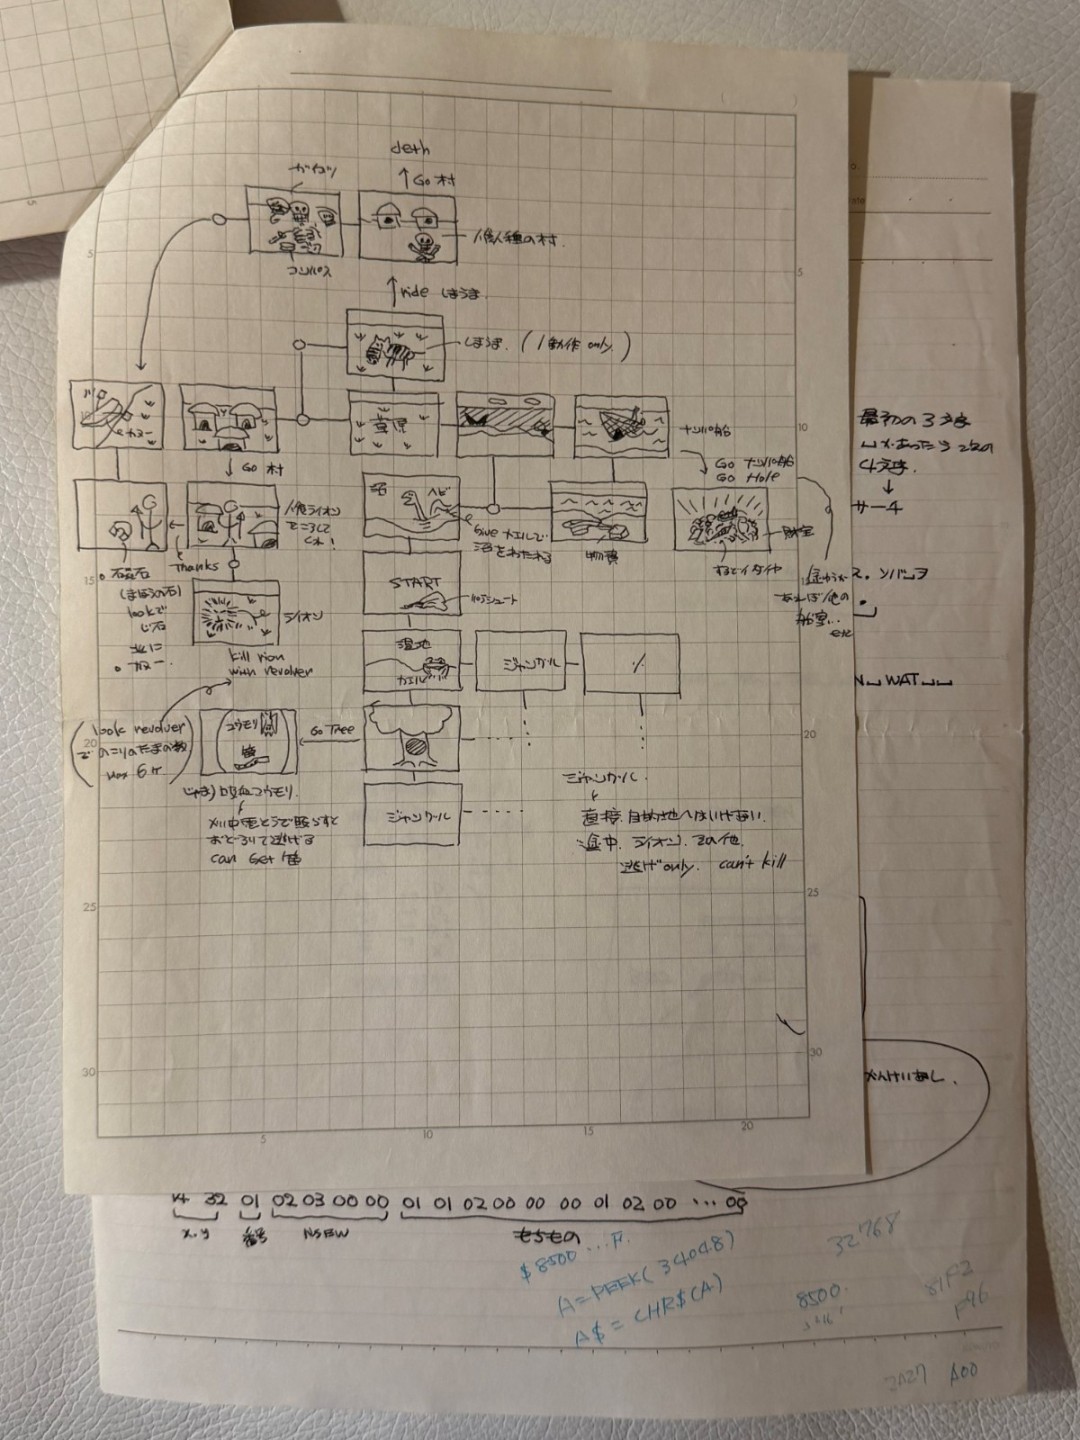 deth
↑ Go 村
ガイコツ
コンパス
人食人種の村.
↑ ride しまうま
しまうま. (1動作 only.)
川
カヌー
草原
ナンパ船
Go ナンパ船
Go Hole
↓ Go 村
沼
ヘビ
人食ライオン
をころして
くれ!
Give カエルで
沼をわたれる
物資
財宝
すべてイタダキ
Thanks
START
パラシュート
石
(まほうの石)
lookで
北に
カヌー.
ライオン
kill rion
with revolver
湿地
カエル
ジャングル
〃
(look revolver
でのこりのたまの数
Max 6ケ)
コウモリ
Go Tree
じゃま)吸血コウモリ.
おどろいて逃げる
can Get 笛
ジャングル
ジャングル.
直接 目的地へはいけない.
途中. ライオン. その他
逃げ only. can't kill
最初の3文字
4文字.
↓
サーチ
あれば/他の
船室...
etc
WAT
かんけいなし.
5
10
15
20
25
30
5
10
20
25
30
5
10
15
20
32 01 02 03 00 00 01 01 02 00 00 00 01 02 00 ... 00
x.y 番号 NSEW もちもの
$8500 ...
A=PEEK(34048)
A$=CHR$(A)
32768
8500
81F2
F96
A00